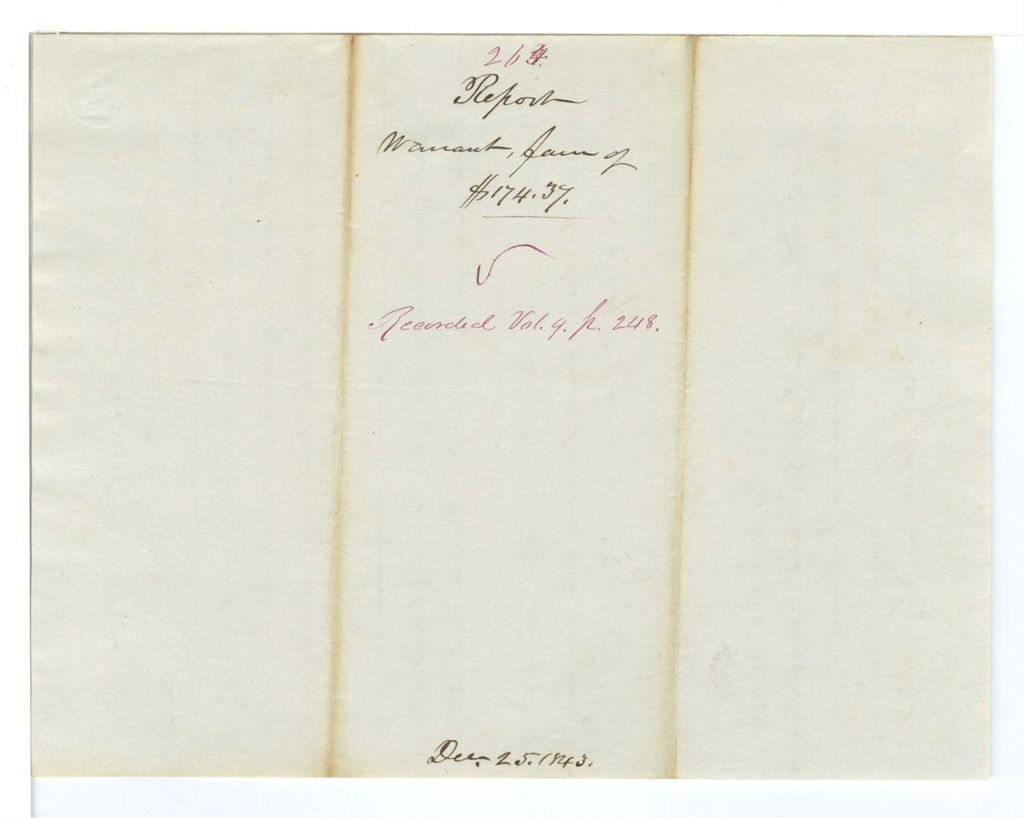 264.
Report
Warrant, favor of
$174.37.
Recorded Vol. 9. p. 248.
Dec. 25. 1843.